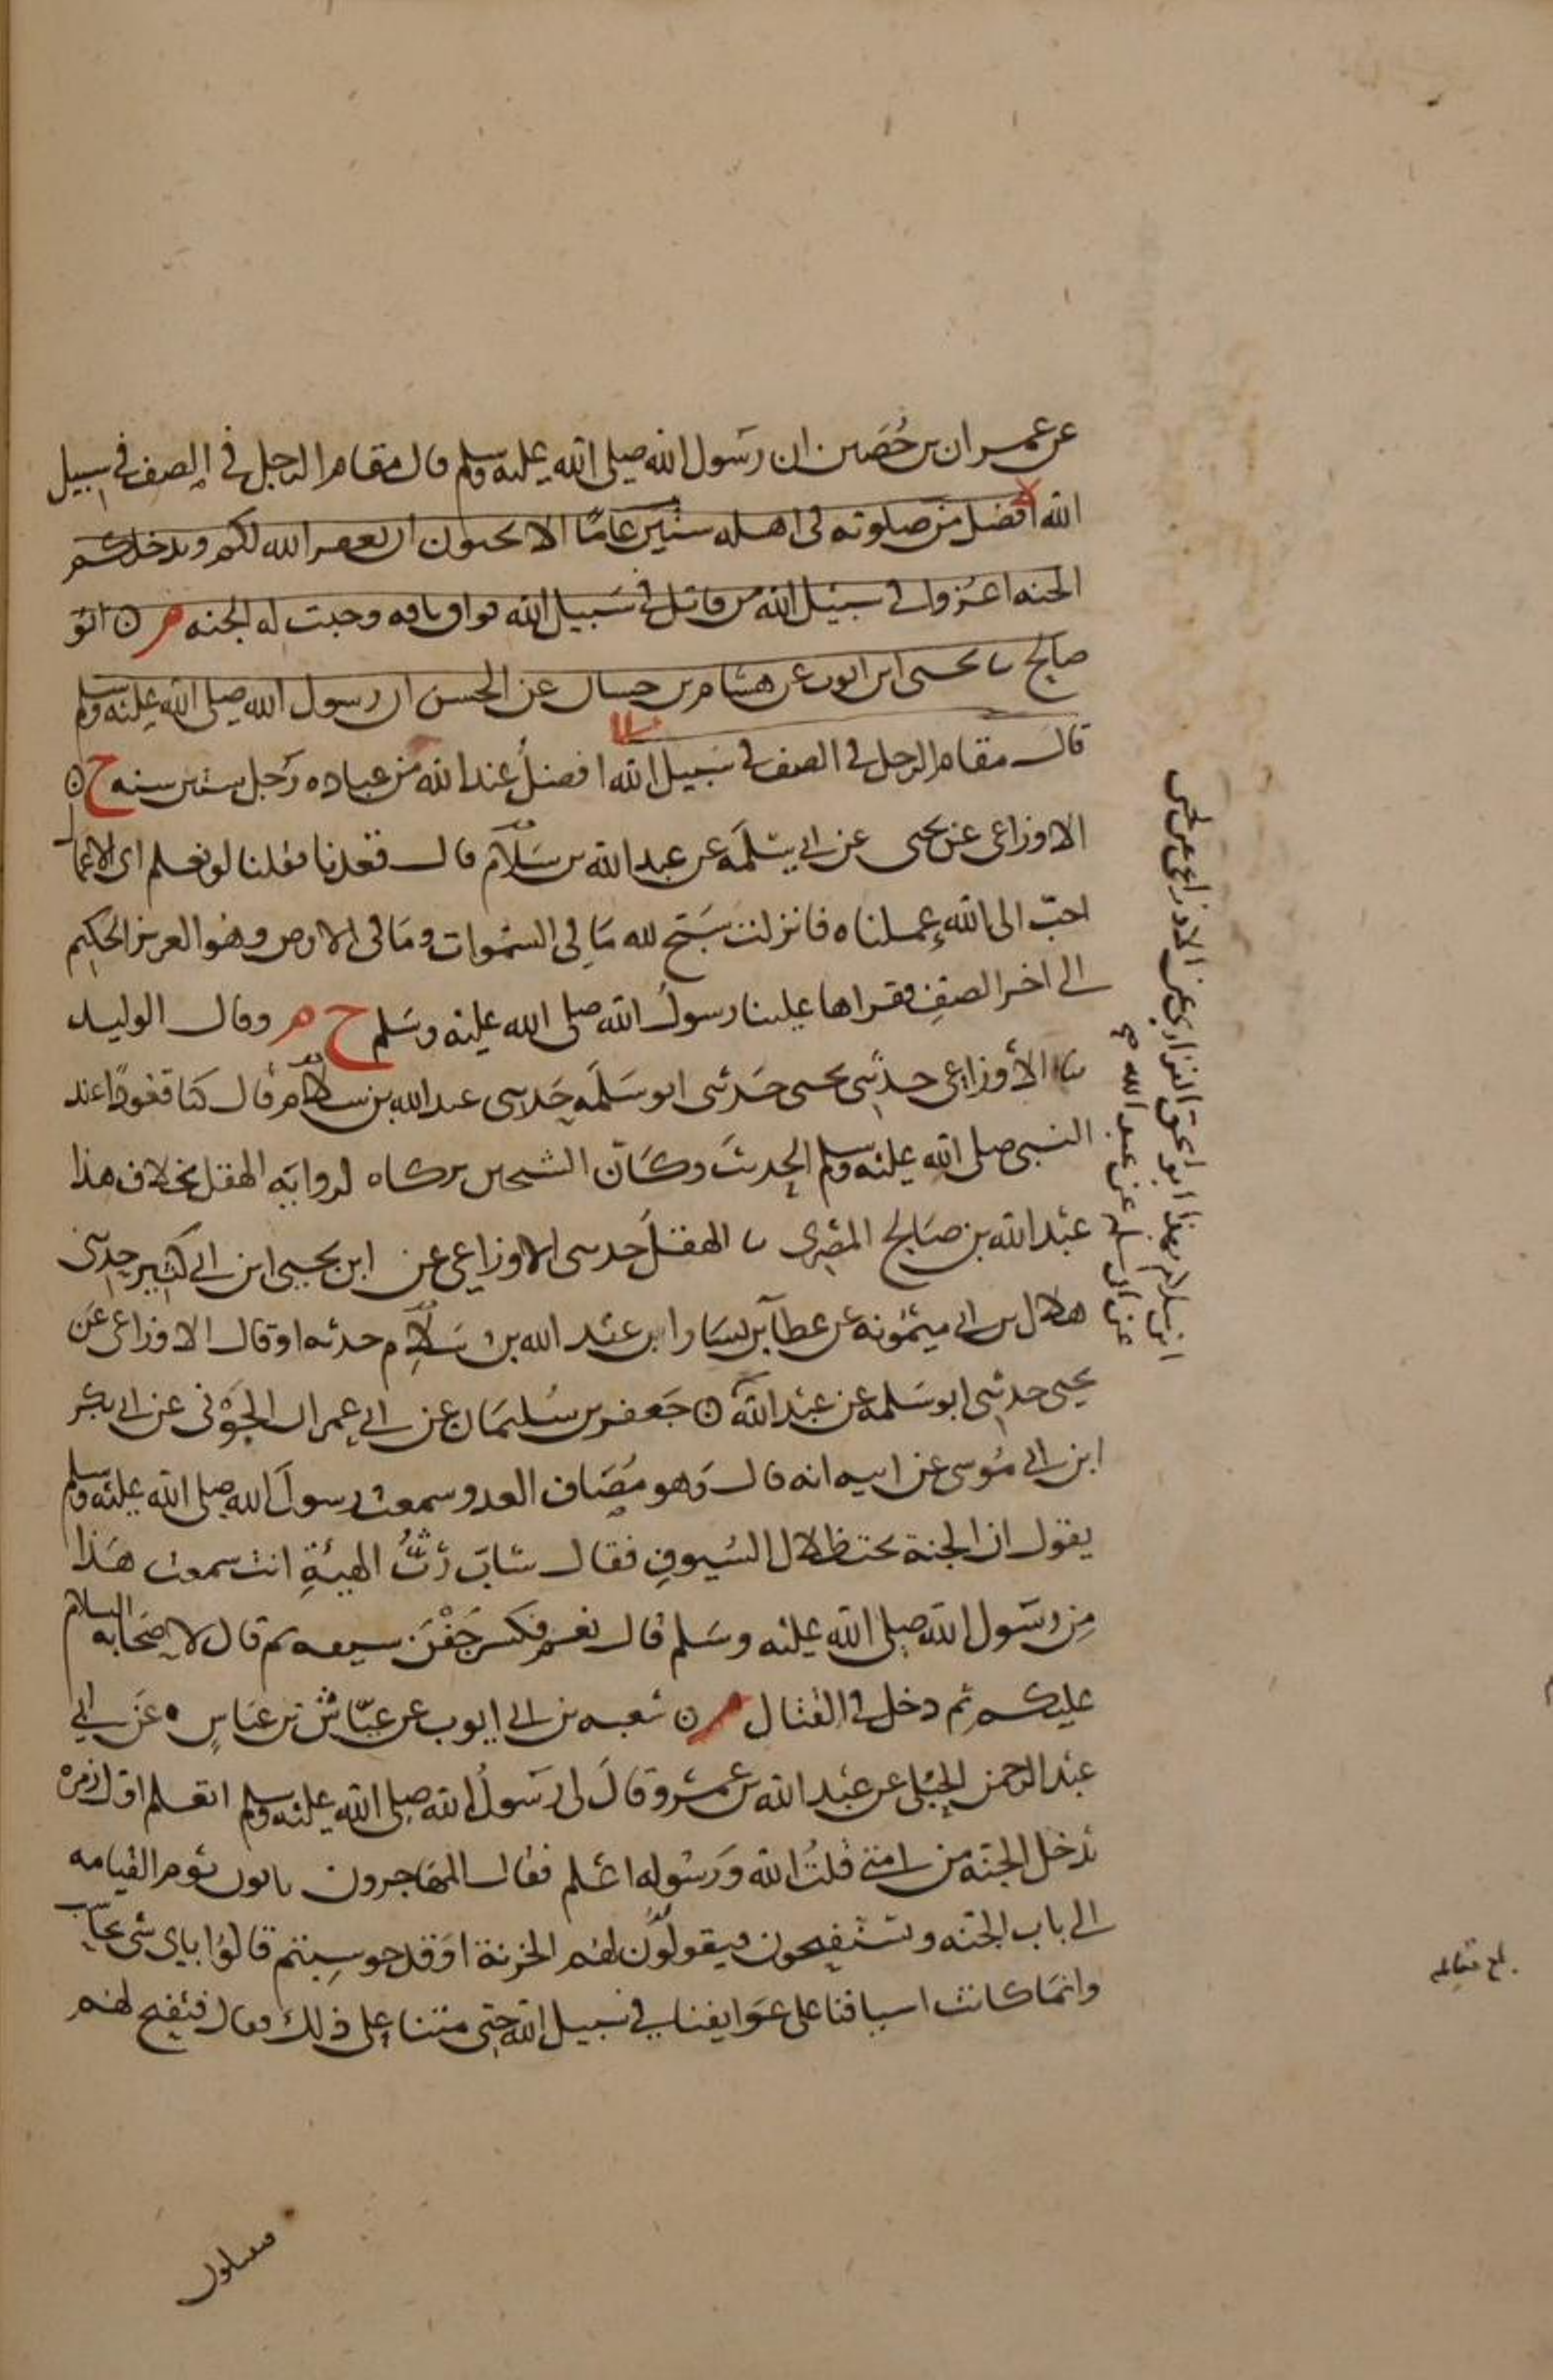 عن عمران بن حصين ان رسول الله صلى الله عليه وسلم قال مقام الرجل في الصف في سبيل
الله افضل من صلوته في اهله ستين عامًا الا تحبون ان يغفر الله لكم ويدخلكم
الجنه اغزوا في سبيل الله من قاتل في سبيل الله فواق ناقه وجبت له الجنه م ن ابو
صالح نا يحيى ابن ايوب عن هشام بن حسان عن الحسن ان رسول الله صلى الله عليه وسلم
قال مقام الرجل في الصف في سبيل الله افضل عند الله من عباده رجل ستين سنه ح ن
الاوزاعي عن يحيى عن ابي سلمه عن عبد الله بن سلام قال قعدنا فقلنا لو نعلم اي الاعمال
احبّ الى الله عملناه فانزلت سبّح لله ما في السموات وما في الارض وهو العزيز الحكيم
الى اخر الصف فقراها علينا رسول الله صلى الله عليه وسلم ح م وقال الوليد
نا الأوزاعي حدثني يحيى حدثني ابو سلمه حدثني عبد الله بن سلام قال كنا قعودًا عند
النبي صلى الله عليه وسلم الحديث وكان الشيخين تركاه لروايه الهقل بخلاف هذا
عبد الله بن صالح المصري نا الهقل حدثني الاوزاعي عن ابن يحيى ابن ابي كثير حدثني
هلال بن ابي ميمونه عن عطآ بن يسار ان عبد الله بن سلام حدثه او قال الاوزاعي عن
يحيى حدثني ابو سلمه عن عبد الله ن جعفر بن سليمان عن ابي عمران الجوني عن ابي بكر
ابن ابي موسى عن ابيه انه قال وهو مصاف العدو سمعت رسول الله صلى الله عليه وسلم
يقول ان الجنة تحت ظلال السيوف فقال شابّ رثُّ الهيئةِ انت سمعت هذا
من رسول الله صلى الله عليه وسلم قال نعم فكسر جفن سيفه ثم قال لاصحابه السلام
عليكم ثم دخل في القتال م ن سعيد بن ابي ايوب عن عيّاش بن عباس عن ابي
عبد الرحمن الحبلي عن عبد الله بن عمرو قال لي رسول الله صلى الله عليه وسلم اتعلم اول زمرة
تدخل الجنه من امتي قلت الله ورسوله اعلم فقال المهاجرون ياتون يوم القيامه
الى باب الجنه ويستفتحون فيقولون لهم الخزنة اوَقد حوسبتم قالوا باي شي نحاسب
وانما كانت اسيافنا على عواتقنا في سبيل الله حتى متنا على ذلك فقال فيفتح لهم
ابو اسحق الفزاري عن الاوزاعي عن يحيى
ابن سلام
عن ابي سلمه عن عبد الله
بلغ مقابله
فيقيلون